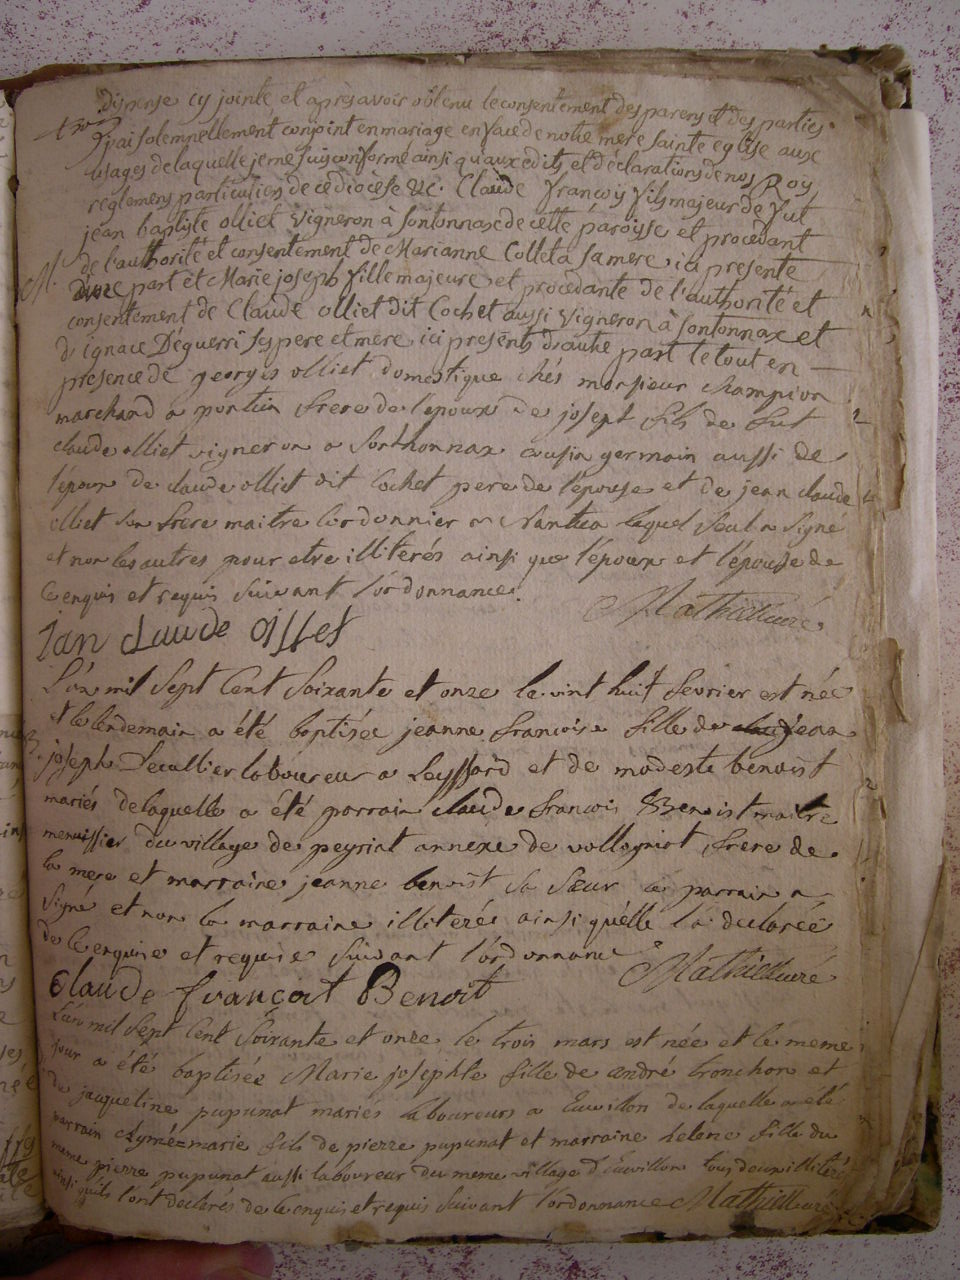 dispense cy jointe et apres avoir obtenu le consentement des parens et des parties
j'ai solemnellement conjoint en mariage en face de notre mere sainte eglise aux
usages de laquelle je me suis conformé ainsi qu'aux edits et declarations de nos Roys
reglemens particuliers de ce diocèse &c. Claude françois fils majeur de fut
jean baptiste olliet vigneron à sontonnax de cette paroisse et procedant
M. de l'authorité et consentement de Marianne Colleta sa mere ici presente
d'une part et Marie joseph fille majeure et procedante de l'authorité et
consentement de Claude olliet dit Cochet aussi vigneron à sontonnax et
d'ignace Déguerri ses pere et mere ici presents d'autre part le tout en
presence de georges olliet domestique chés monsieur champion
marchand a frere de l'epoux de joseph fils de fut
claude olliet vigneron a sonthonnax cousin germain aussi de
l'époux de claude olliet dit Cochet pere de l'épouse et de jean claude
olliet son frere maitre Cordonnier a Nantua lequel seul a signé
et non les autres pour etre illiterés ainsi que l'époux et l'épouse de
ce enquis et requis suivant l'ordonnance. Mathieu curé
Jan claude olliet
L'an mil sept Cent soixante et onze le vint huit fevrier est née
et le lendemain a été baptisée jeanne francoise fille de jean
joseph Lecullier laboureur a Leyssard et de modeste benoist
mariés de laquelle a été parrain claude francois Benoist maitre
menuissier du village de peyriat annexe de vollogniat frere de
la mere et marraine jeanne benoist sa sœur ce parrain a
signé et non la marraine illiterée ainsi qu'elle l'a declarée
de ce enquise et requise suivant l'ordonnance Mathieu curé
Claude françoit Benoit
L'an mil sept Cent soixante et onze le trois mars est née et le meme
jour a été baptisée Marie josephte fille de andré tronchon et
de jacqueline pupunat mariés laboureurs a de laquelle a été
parrain marie fils de pierre pupunat et marraine helene fille du
meme pierre pupunat aussi laboureur du meme village tous deux illiterés
ainsi qu'ils l'ont declarés de ce enquis et requis suivant l'ordonnance Mathieu curé